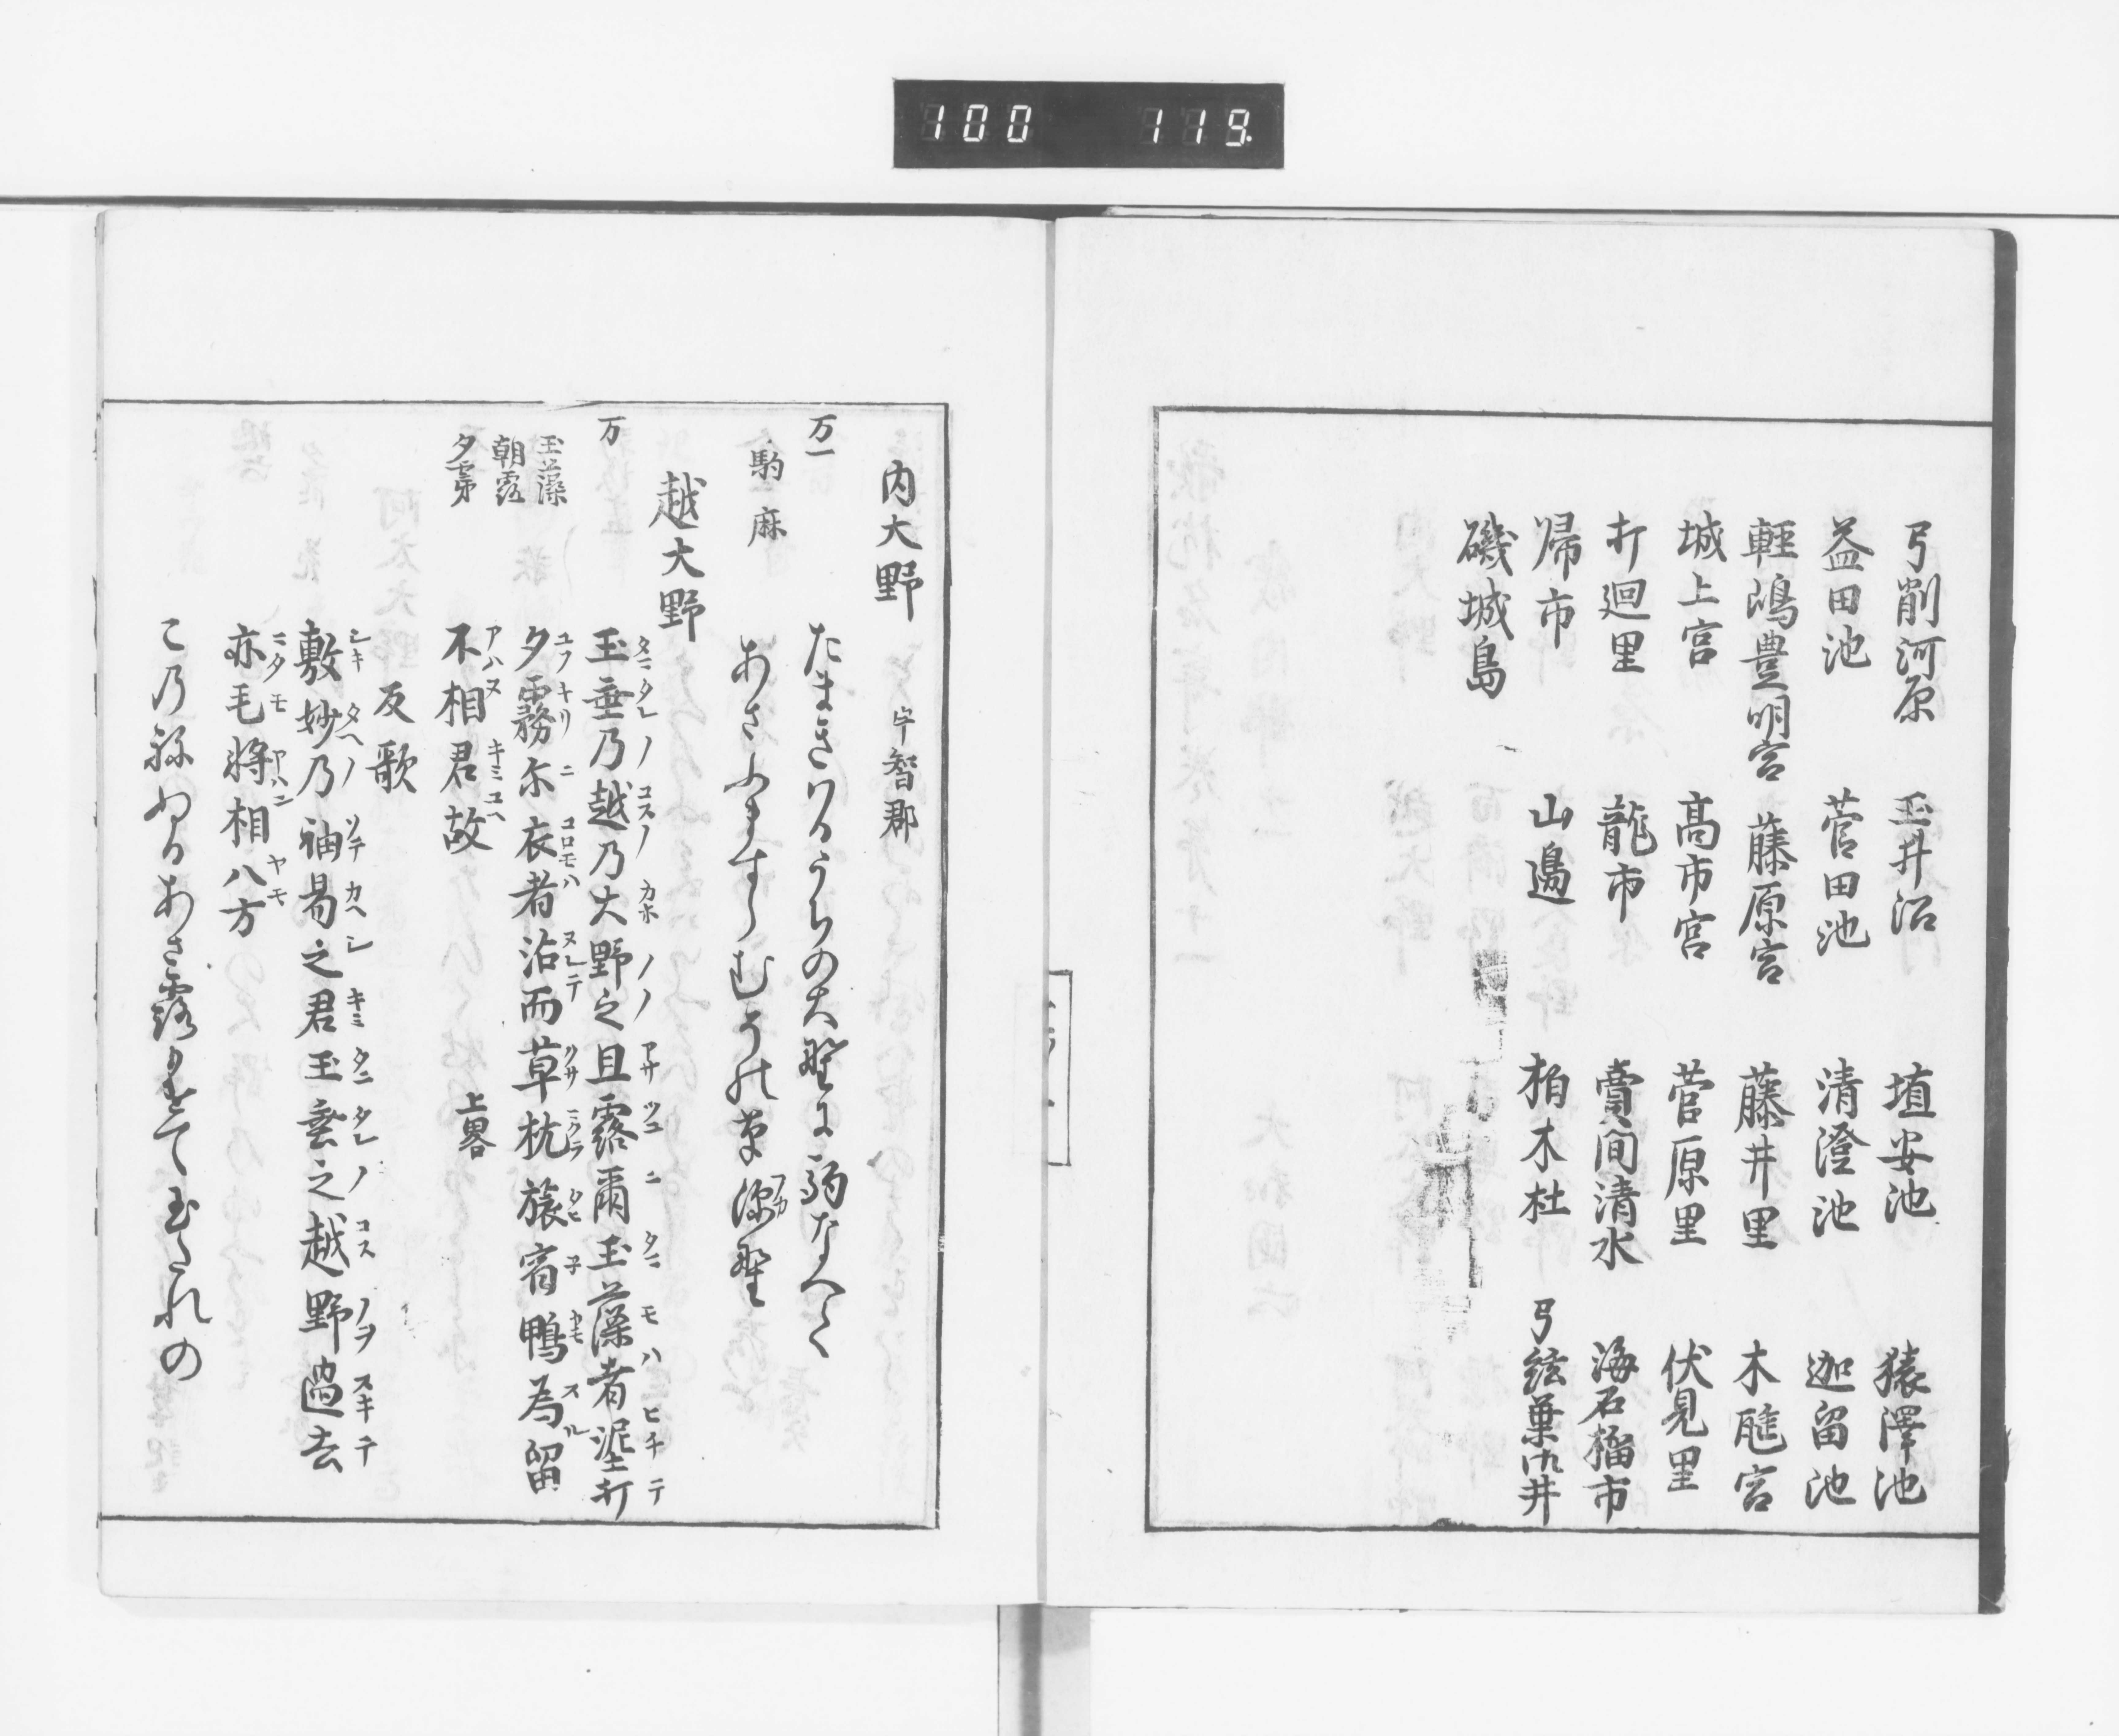 100 119.
弓削河原 玉井沼 埴安池 猿澤池
益田池 菅田池 清澄池 迦留池
輕嶋豊明宮 藤原宮 藤井里 木𣜜宮
城上宮 高市宮 菅原里 伏見里
打廻里 龍市 賣間清水 海石榴市
帰市 山邊 柏木杜 弓絃葉御井
磯城島
内大野 宇智郡
万一 たまきはるうちの大野に駒なへて
駒 麻 あさふますらむその草深野
越大野
万 玉垂乃越乃大野之且露爾玉藻者泥打
玉藻
朝露
夕霧
夕霧尓衣者沾而草枕旅宿鴨為留
不相君故 上畧
反歌
敷妙乃袖易之君玉垂之越野過去
亦毛将相八方
この ぬるあさ露 て玉たれの